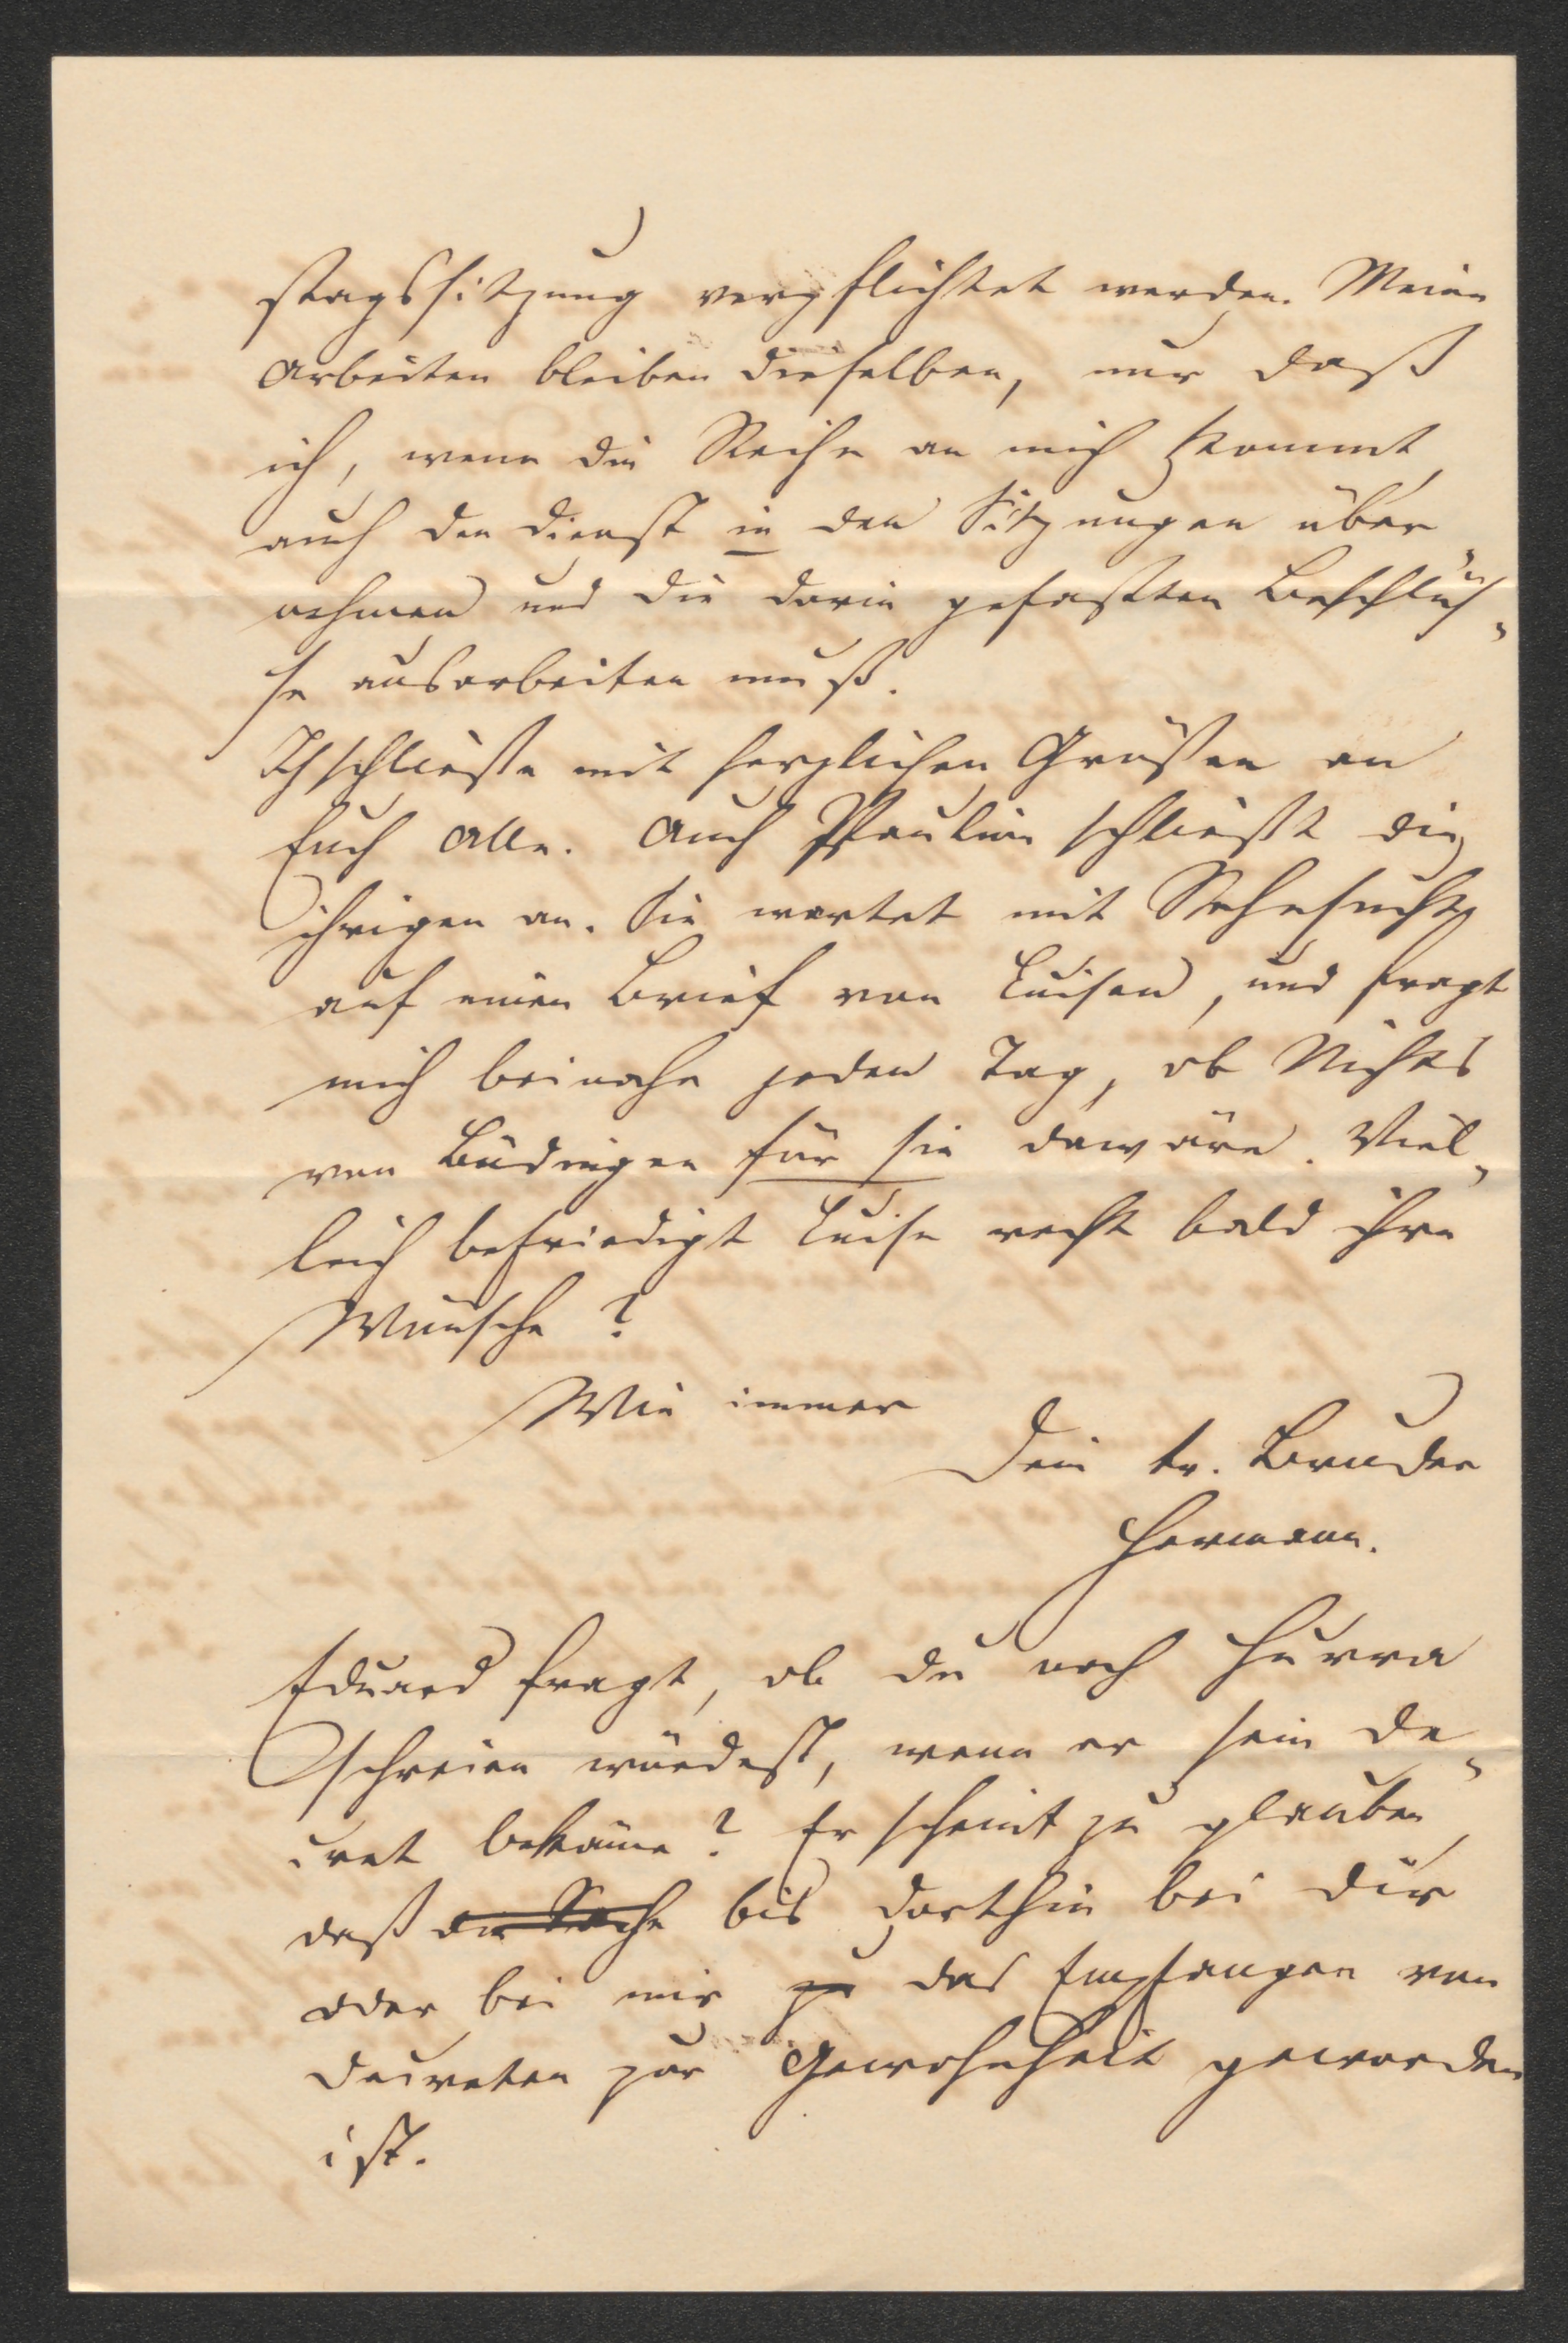 stagssitzung verpflichtet werden. Meine
Arbeiten bleiben dieselben, nur daß
ich, wenn die Reihe an mich kommt,
auch den Dienst in den Sitzungen über-
nehmen und die darin gefaßten Beschlüs-
se ausarbeiten muß.
Ich schließe mit herzlichen Grüßen an
Euch Alle. Auch Pauline schließt die
ihrigen an. Sie wartet mit Sehnsucht
auf einen Brief von Luisen, und fragt
mich beinahe jeden Tag, ob Nichts
von Büdingen für sie da wäre. Viel-
leich befriedigt Luise recht bald ihre
Wünsche?
Wie immer
Dein tr. Bruder
Hermann.
Eduard fragt, ob du noch Hurra
schreien würdest, wenn er sein De-
cret bekäme? Er scheint zu glauben,
daß die Sache bis dorthin bei dir
oder bei mir zu das Empfangen von
Decreten zur Gewohnheit geworden
ist.